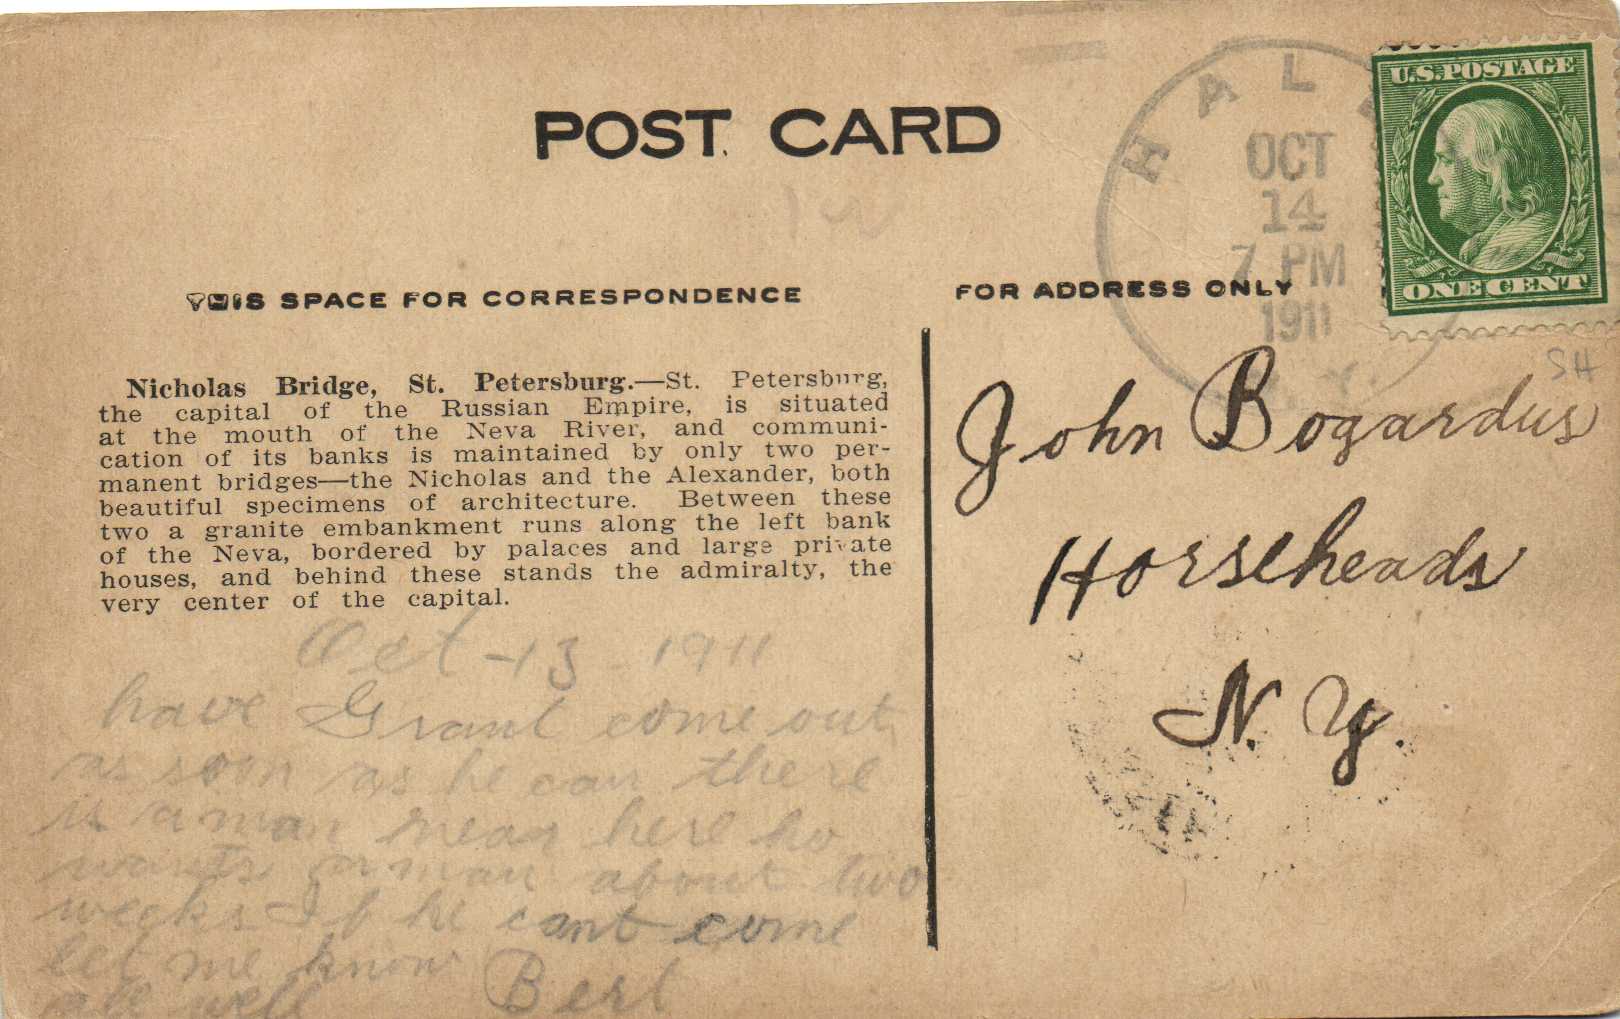 POST CARD
HAL
OCT
14
7 PM
1911
U.S. POSTAGE
ONE CENT
THIS SPACE FOR CORRESPONDENCE
FOR ADDRESS ONLY
SH
Nicholas Bridge, St. Petersburg.—St. Petersburg,
the capital of the Russian Empire, is situated
at the mouth of the Neva River, and communi-
cation of its banks is maintained by only two per-
manent bridges—the Nicholas and the Alexander, both
beautiful specimens of architecture. Between these
two a granite embankment runs along the left bank
of the Neva, bordered by palaces and large private
houses, and behind these stands the admiralty, the
very center of the capital.
Oct - 13 - 1911
have Grant come out
as soon as he can there
is a man near here ho
wants a man about two
weeks If he cant come
let me know
all well Bert
John Bogardus
Horseheads
N. Y.